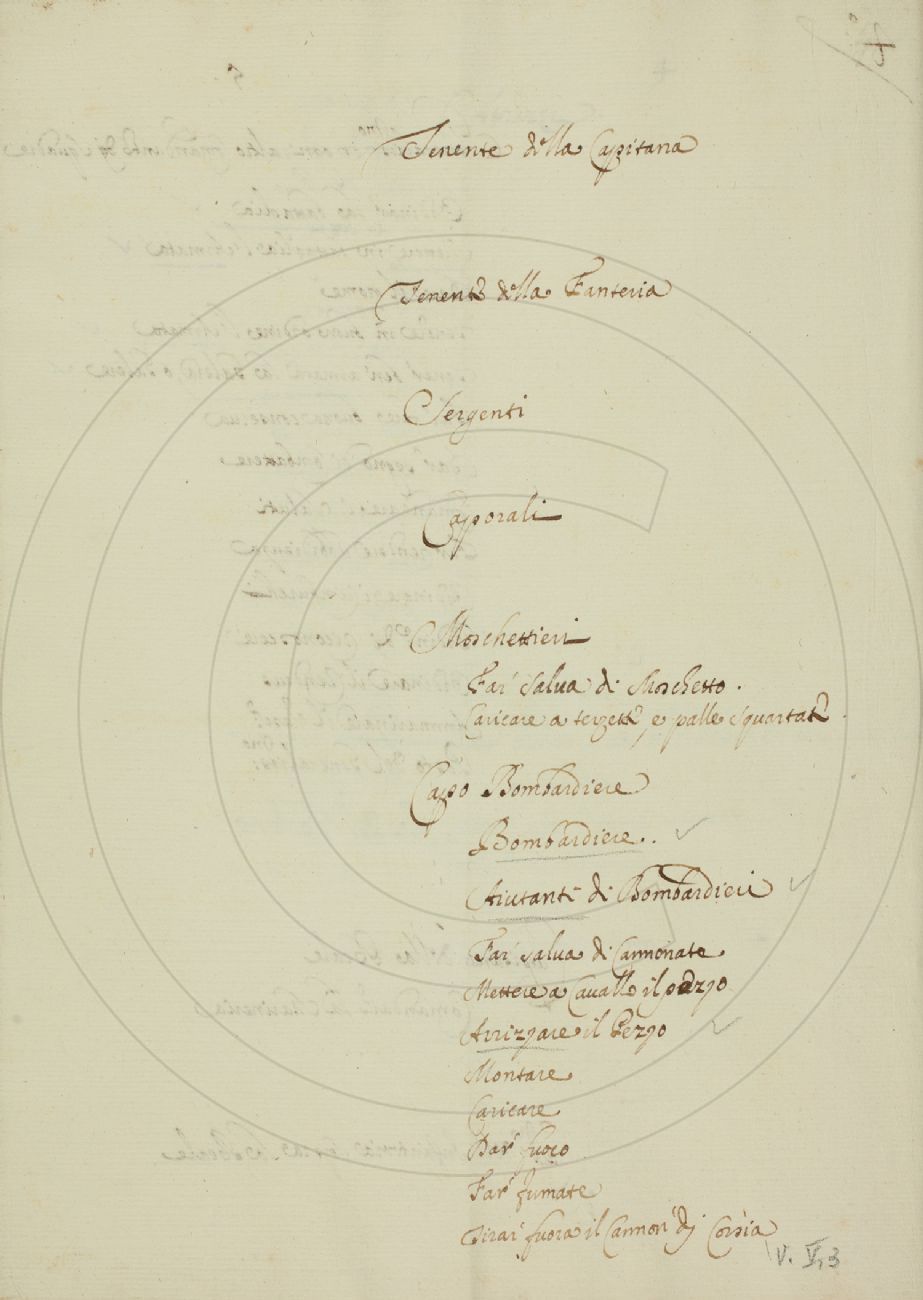 Tenente della Capitana
Tenente della Fanteria
Sergenti
Caporali
Moschettieri
Far' salua di Moschetto.
Caricare a terzette, e palle squartate
Capo Bombardiere
Bombardiere..
Aiutanti di Bombardieri
Far' salua di Cannonate
Mettere a Cavallo il pezzo
Arrizzare il Pezzo
Montare
Caricare
Dar' fuoco
Far' fumate
Tirar' fuora il Cannon' di Corsia
V. V,3